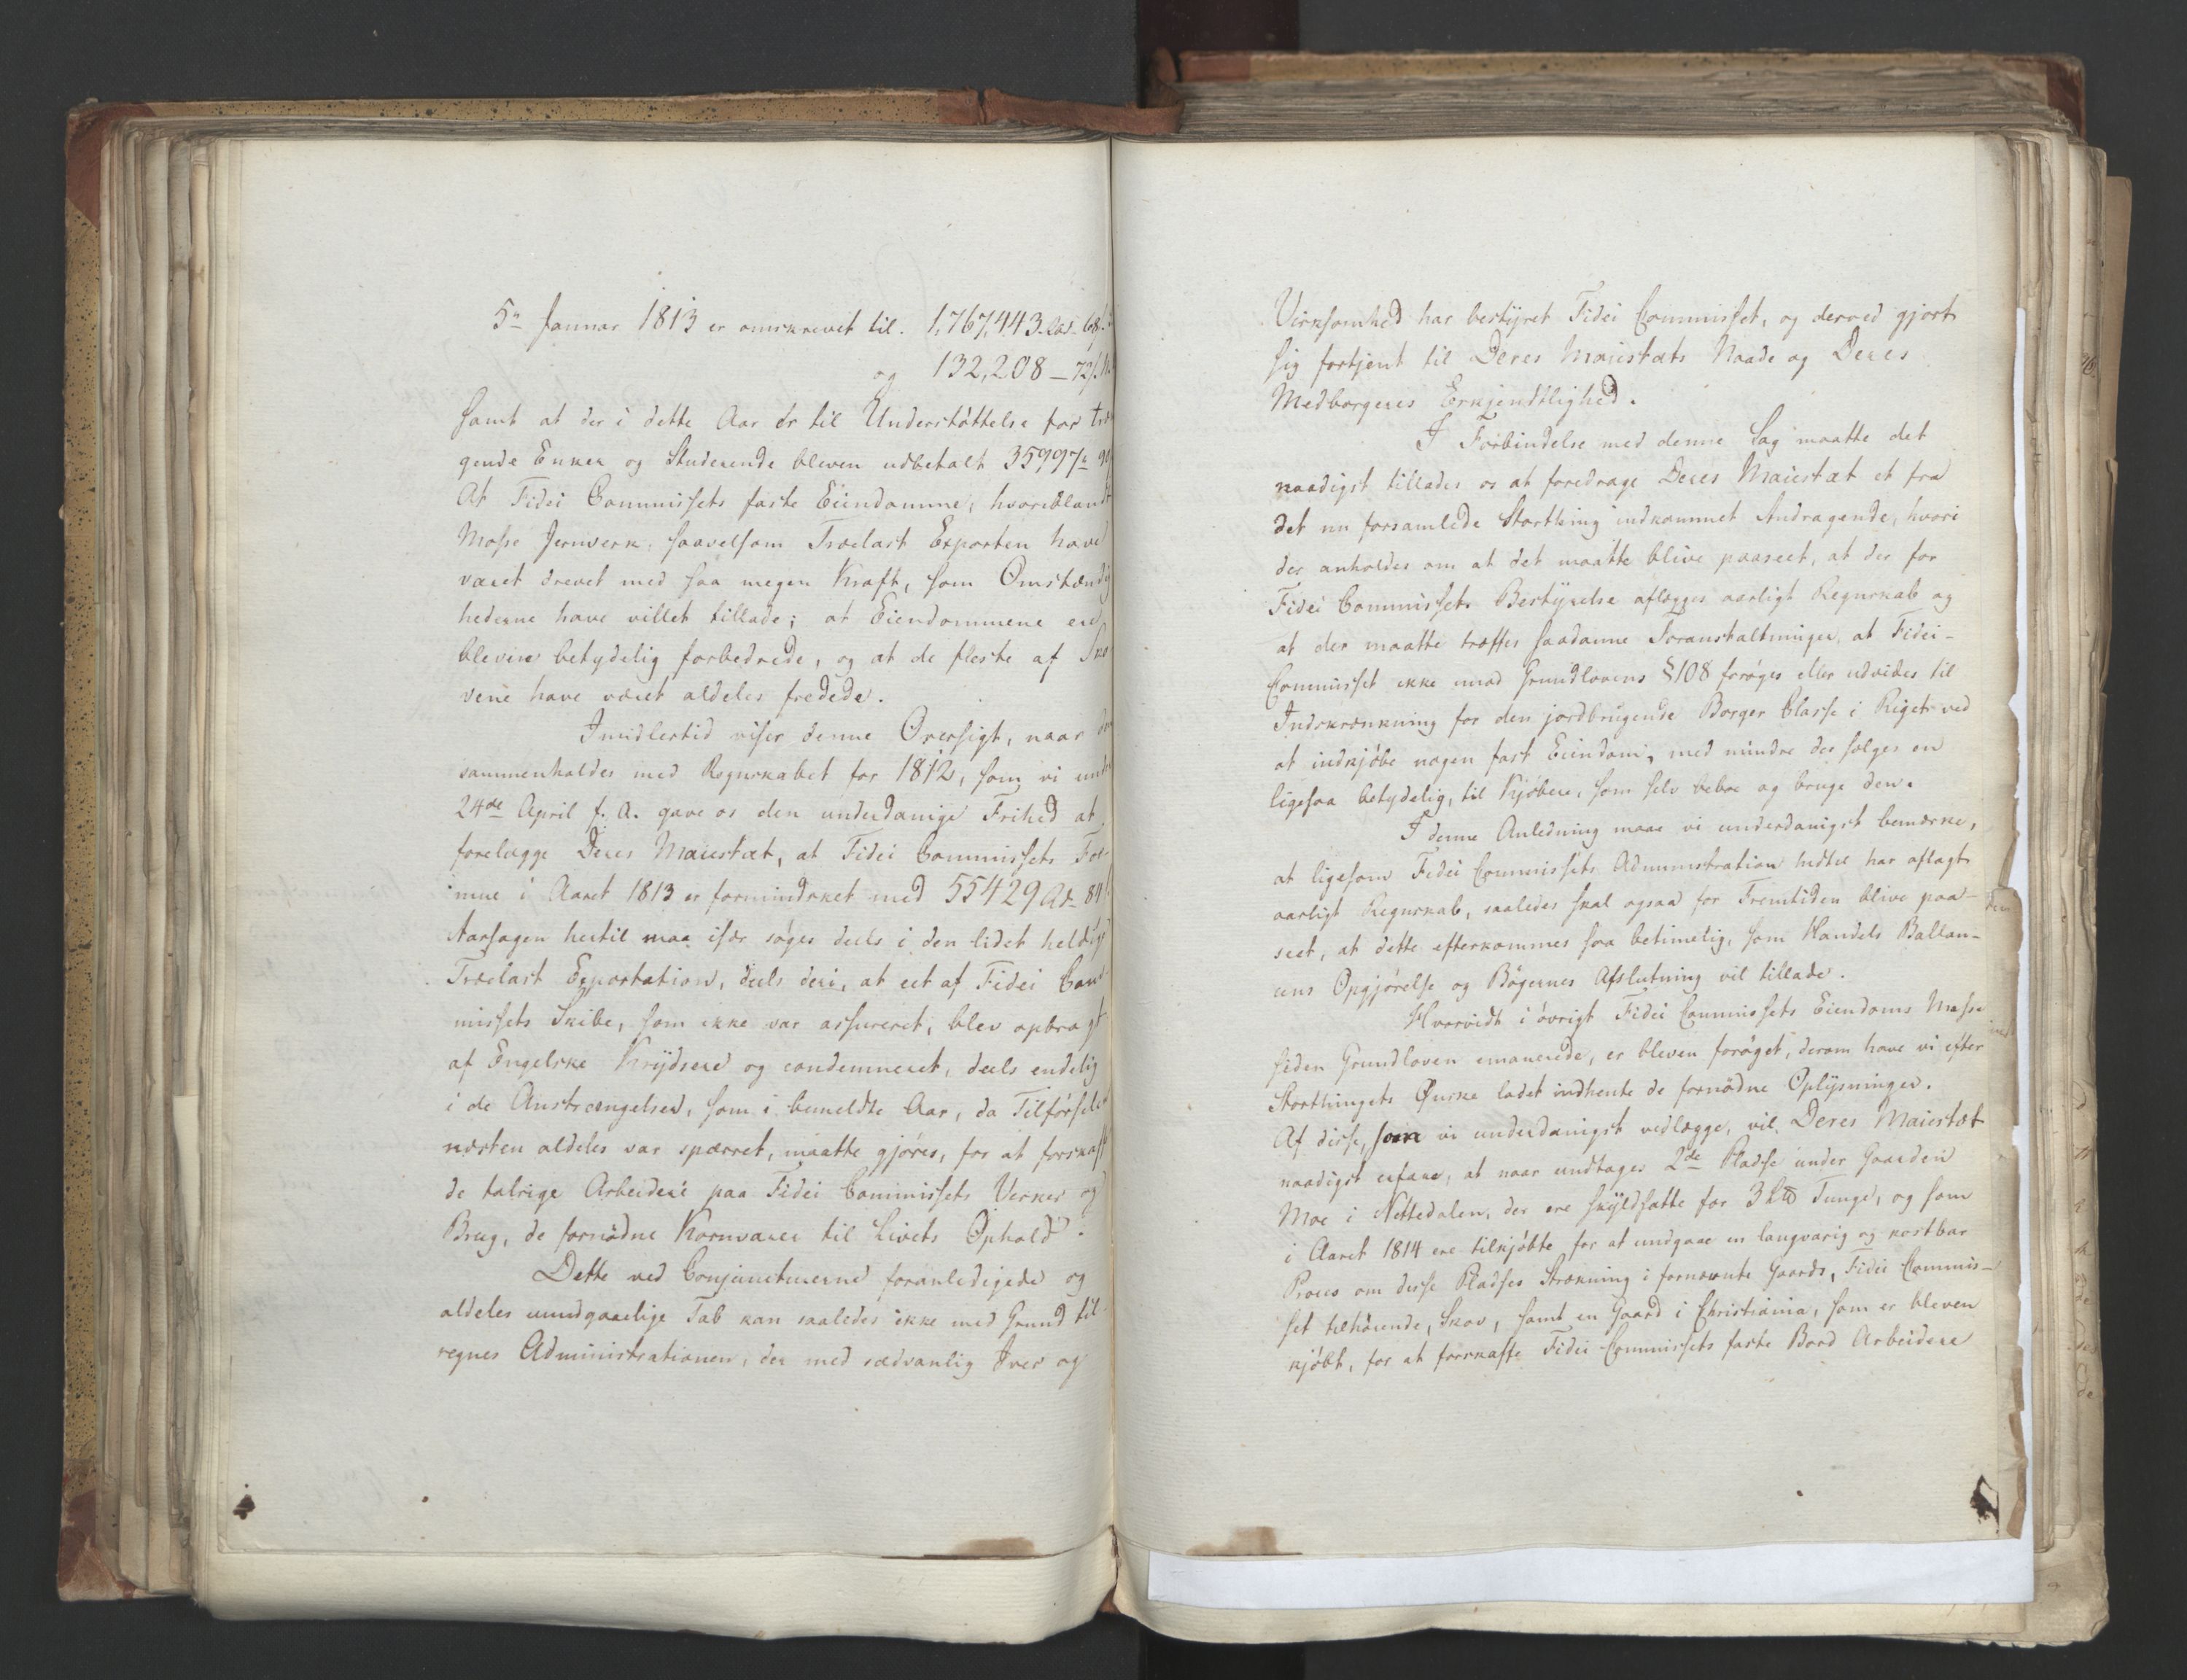 5n Januar 1813 er omskrevet til. 1,767,443. Rd. 68.
og 132,208 – 72
samt at der i dette Aar er til Understøttelse for træn
gende Enker og Studerende bleven udbetalt 35997
At Fidei Commissets faste Eiendomme, hvoriblandt
Mosse Jernverk, saavelsom Trælast Exporten have
været drevet med saa megen Kraft, som Omstændig
hederne have villet tillade; at Eiendommene ere
blevne betydelig forbedrede, og at de fleste af Sko
vene have været aldeles fredede.
Imidlertid viser denne Oversigt, naar den
sammenholdes med Regnskabet for 1812, som vi under
24de April f. A. gave os den underdanige Frihed at
forelægge Deres Maiestæt, at Fidei Commissets For
mue i Aaret 1813 er formindsket med 55429 Rd. 84
Aarsagen hertil maa især søges deels i den lidet heldige
Trælast Exportation, deels deri, at eet af Fidei Com
missets Skibe, som ikke var assureret, blev opbragt
af Engelske Krydsere og condemneret, deels endelig
i de Anstrængelser, som i bemeldte Aar, da Tilførselen
næsten aldeles var spærret, maatte gjøres, for at forskaffe
de talrige Arbeidere paa Fidei Commissets Verker og
Brug, de fornødne Kornvarer til Livets Ophold.
Dette ved Conjuncturerne foranledigede og
aldeles uundgaaelige Tab kan saaledes ikke med Grund til
regnes Administrationen, der med sædvanlig Iver og
Virksomhed har bestyret Fidei Commisset, og derved gjort
sig fortjent til Deres Maiestæts Naade og Deres
Medborgeres Erkjendtlighed.
I Forbindelse med denne Sag maatte det
naadigst tillades os at foredrage Deres Maiestæt et fra
det nu forsamlede Storthing indkommet Andragende, hvori
der anholdes om at det maatte blive paaseet, at der for
Fidei Commissets Bestyrelse aflægges aarligt Regnskab og
at der maatte træffes saadanne Foranstaltninger, at Fidei-
Commisset ikke mod Grundlovens §108 forøges eller udvides til
Indskrænkning for den jordbrugende Borger Classe i Riget ved
at indkjøbe nogen fast Eiendom, med mindre der sælges en
ligesaa betydelig, til Kjøbere, som selv beboe og bruge den.
I denne Anledning maae vi underdanigst bemærke,
at ligesom Fidei Commissets Administration hidtil har aflagt
aarligt Regnskab, saaledes skal ogsaa for Fremtiden blive paa-
seet, at dette efterkommes saa betimelig, som Handels Ballan-
cens Opgjørelse og Bøgernes Afslutning vil tillade.
Hvorvidt i øvrigt Fidei Commissets Eiendoms Masse
siden Grundloven emanerede, er bleven forøget, derom have vi efter
Storthingets Ønske ladet indhente de fornødne Oplysninger.
Af disse, som vi underdanigst vedlægge, vil Deres Maiestæt
naadigst erfare, at naar undtages 2de Pladse under Gaarden
Moe i Nittedalen, der ere skyldsatte for 3 Tunge, og som
i Aaret 1814 ere tilkjøbte for at undgaae en langvarig og kostbar
Proces om disse Pladses Strækning i fornævnte Gaards, Fidei Commis-
set tilhørende, Skov, samt en Gaard i Christiania, som er bleven
kjøbt, for at forskaffe Fidei Commissets faste Bord Arbeidere